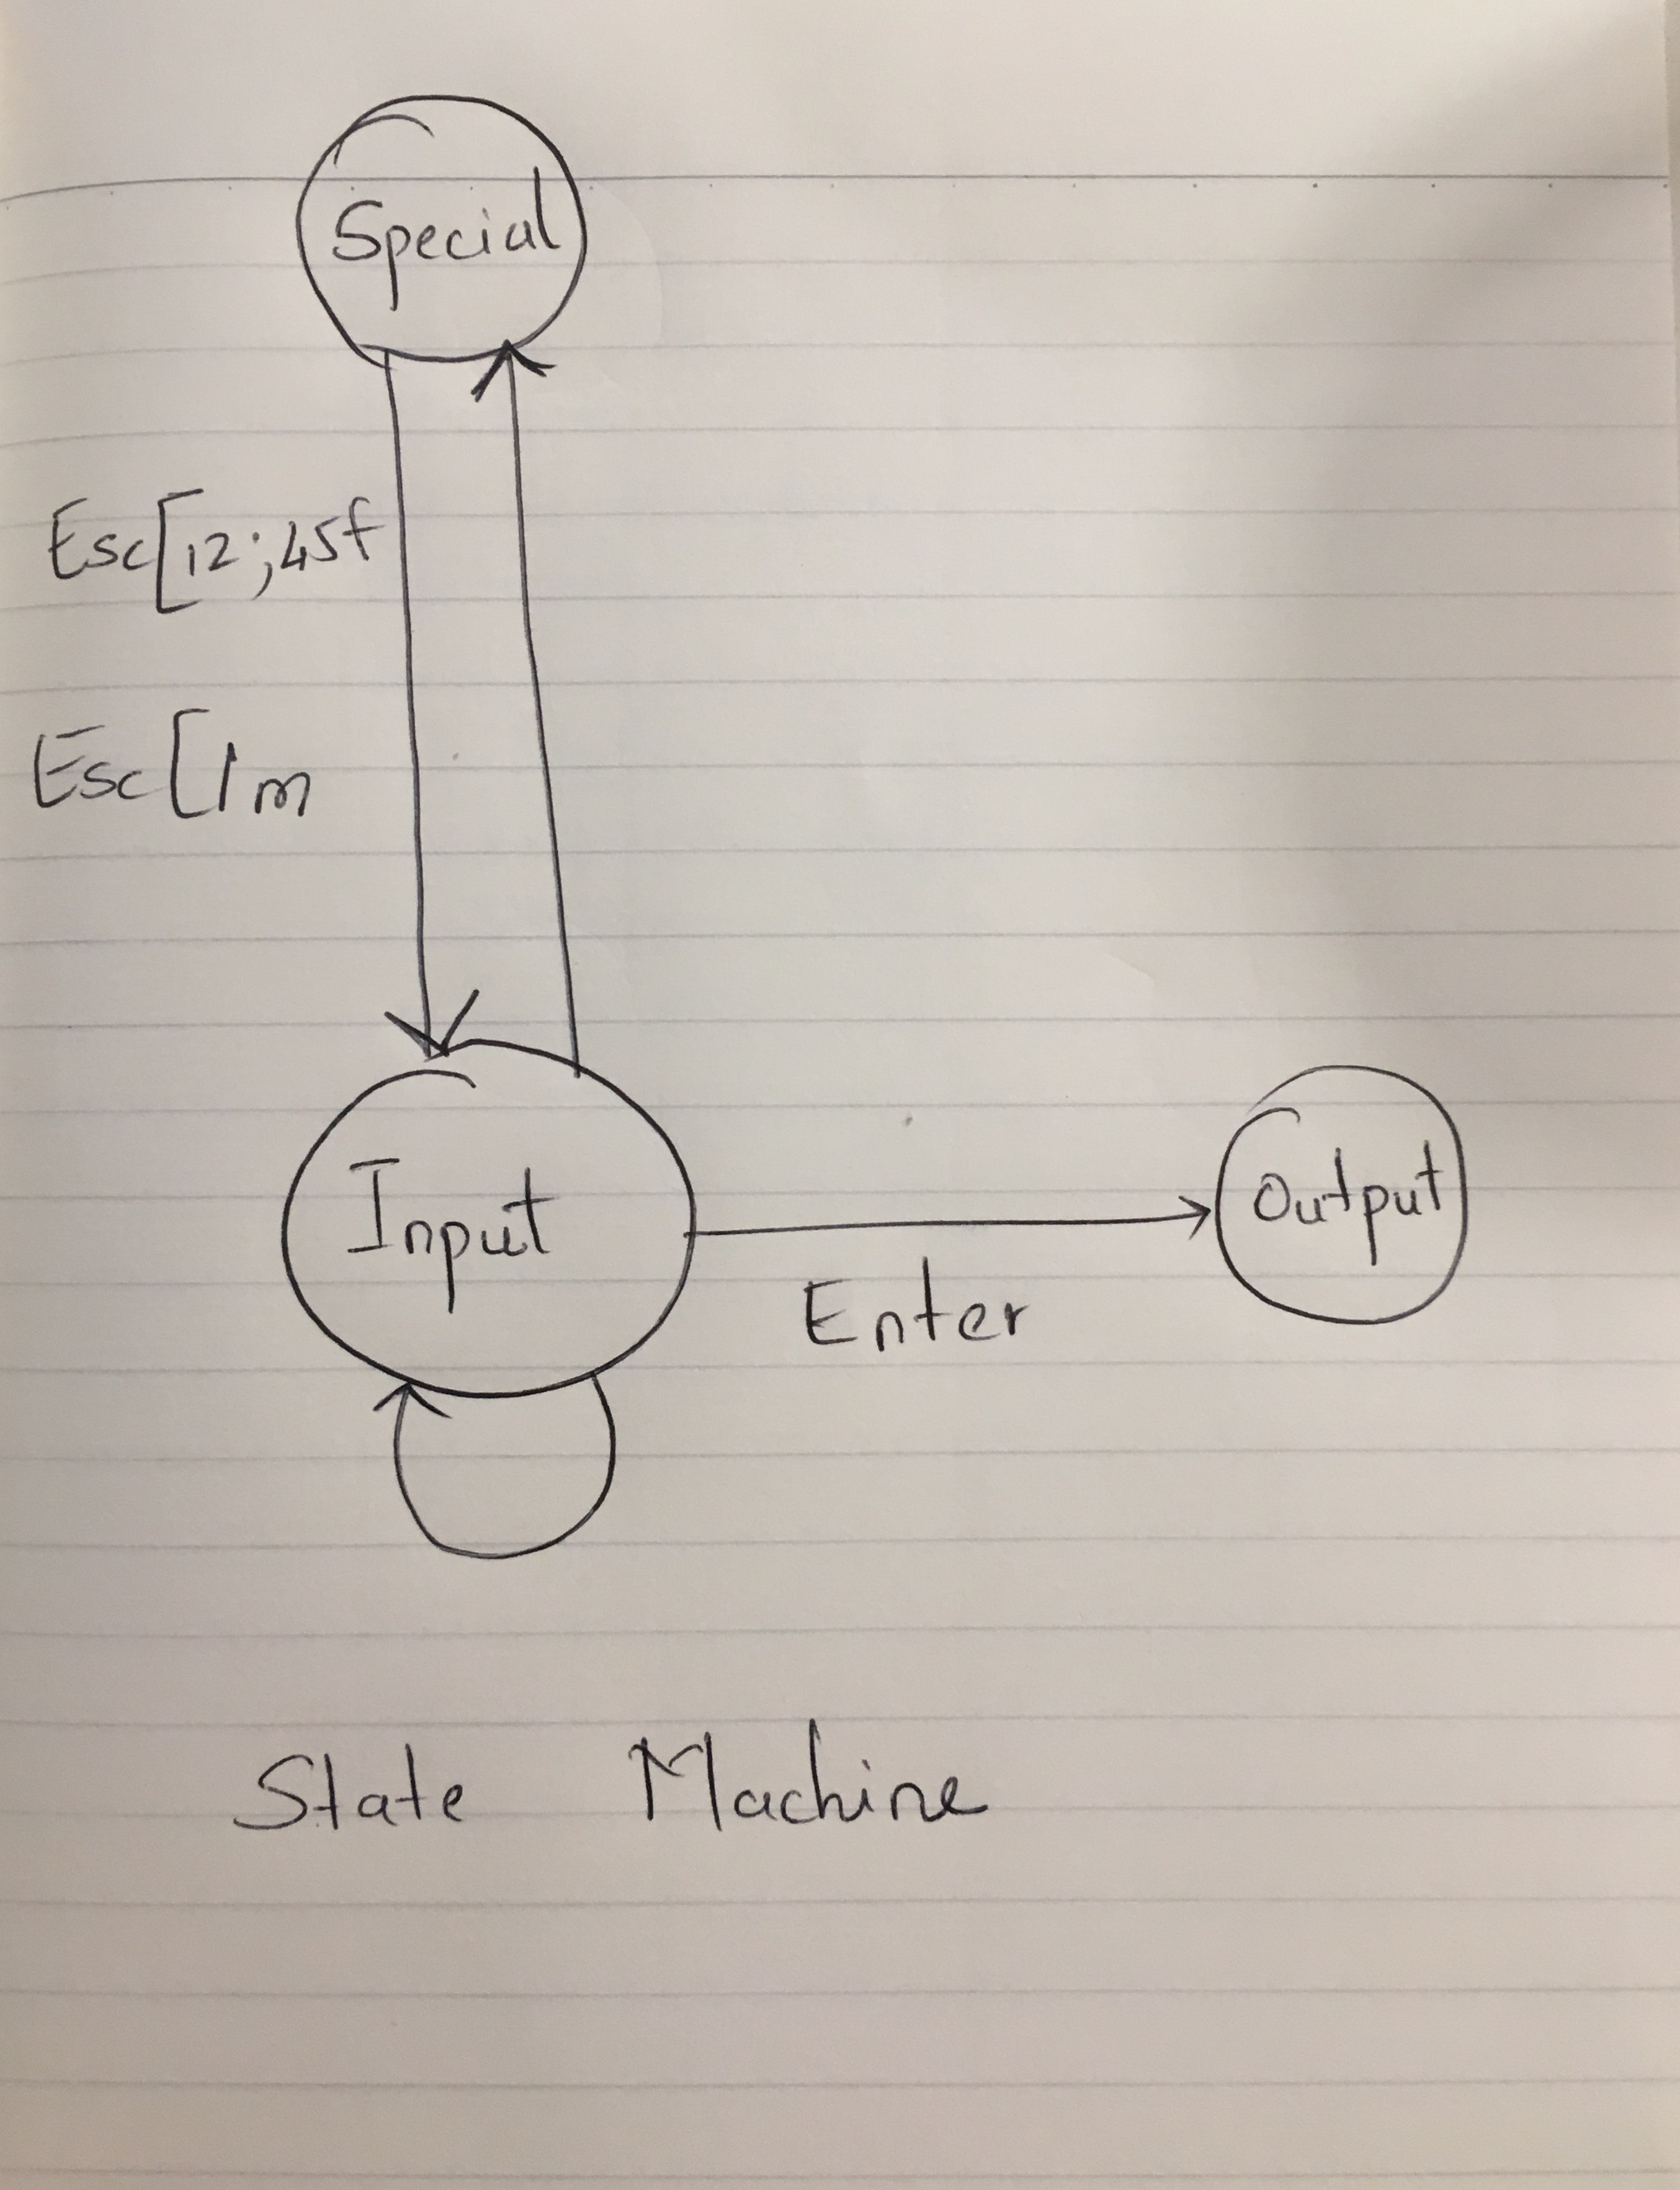 Special
Esc[12;45f
Esc[1m
Input
Output
Enter
State Machine